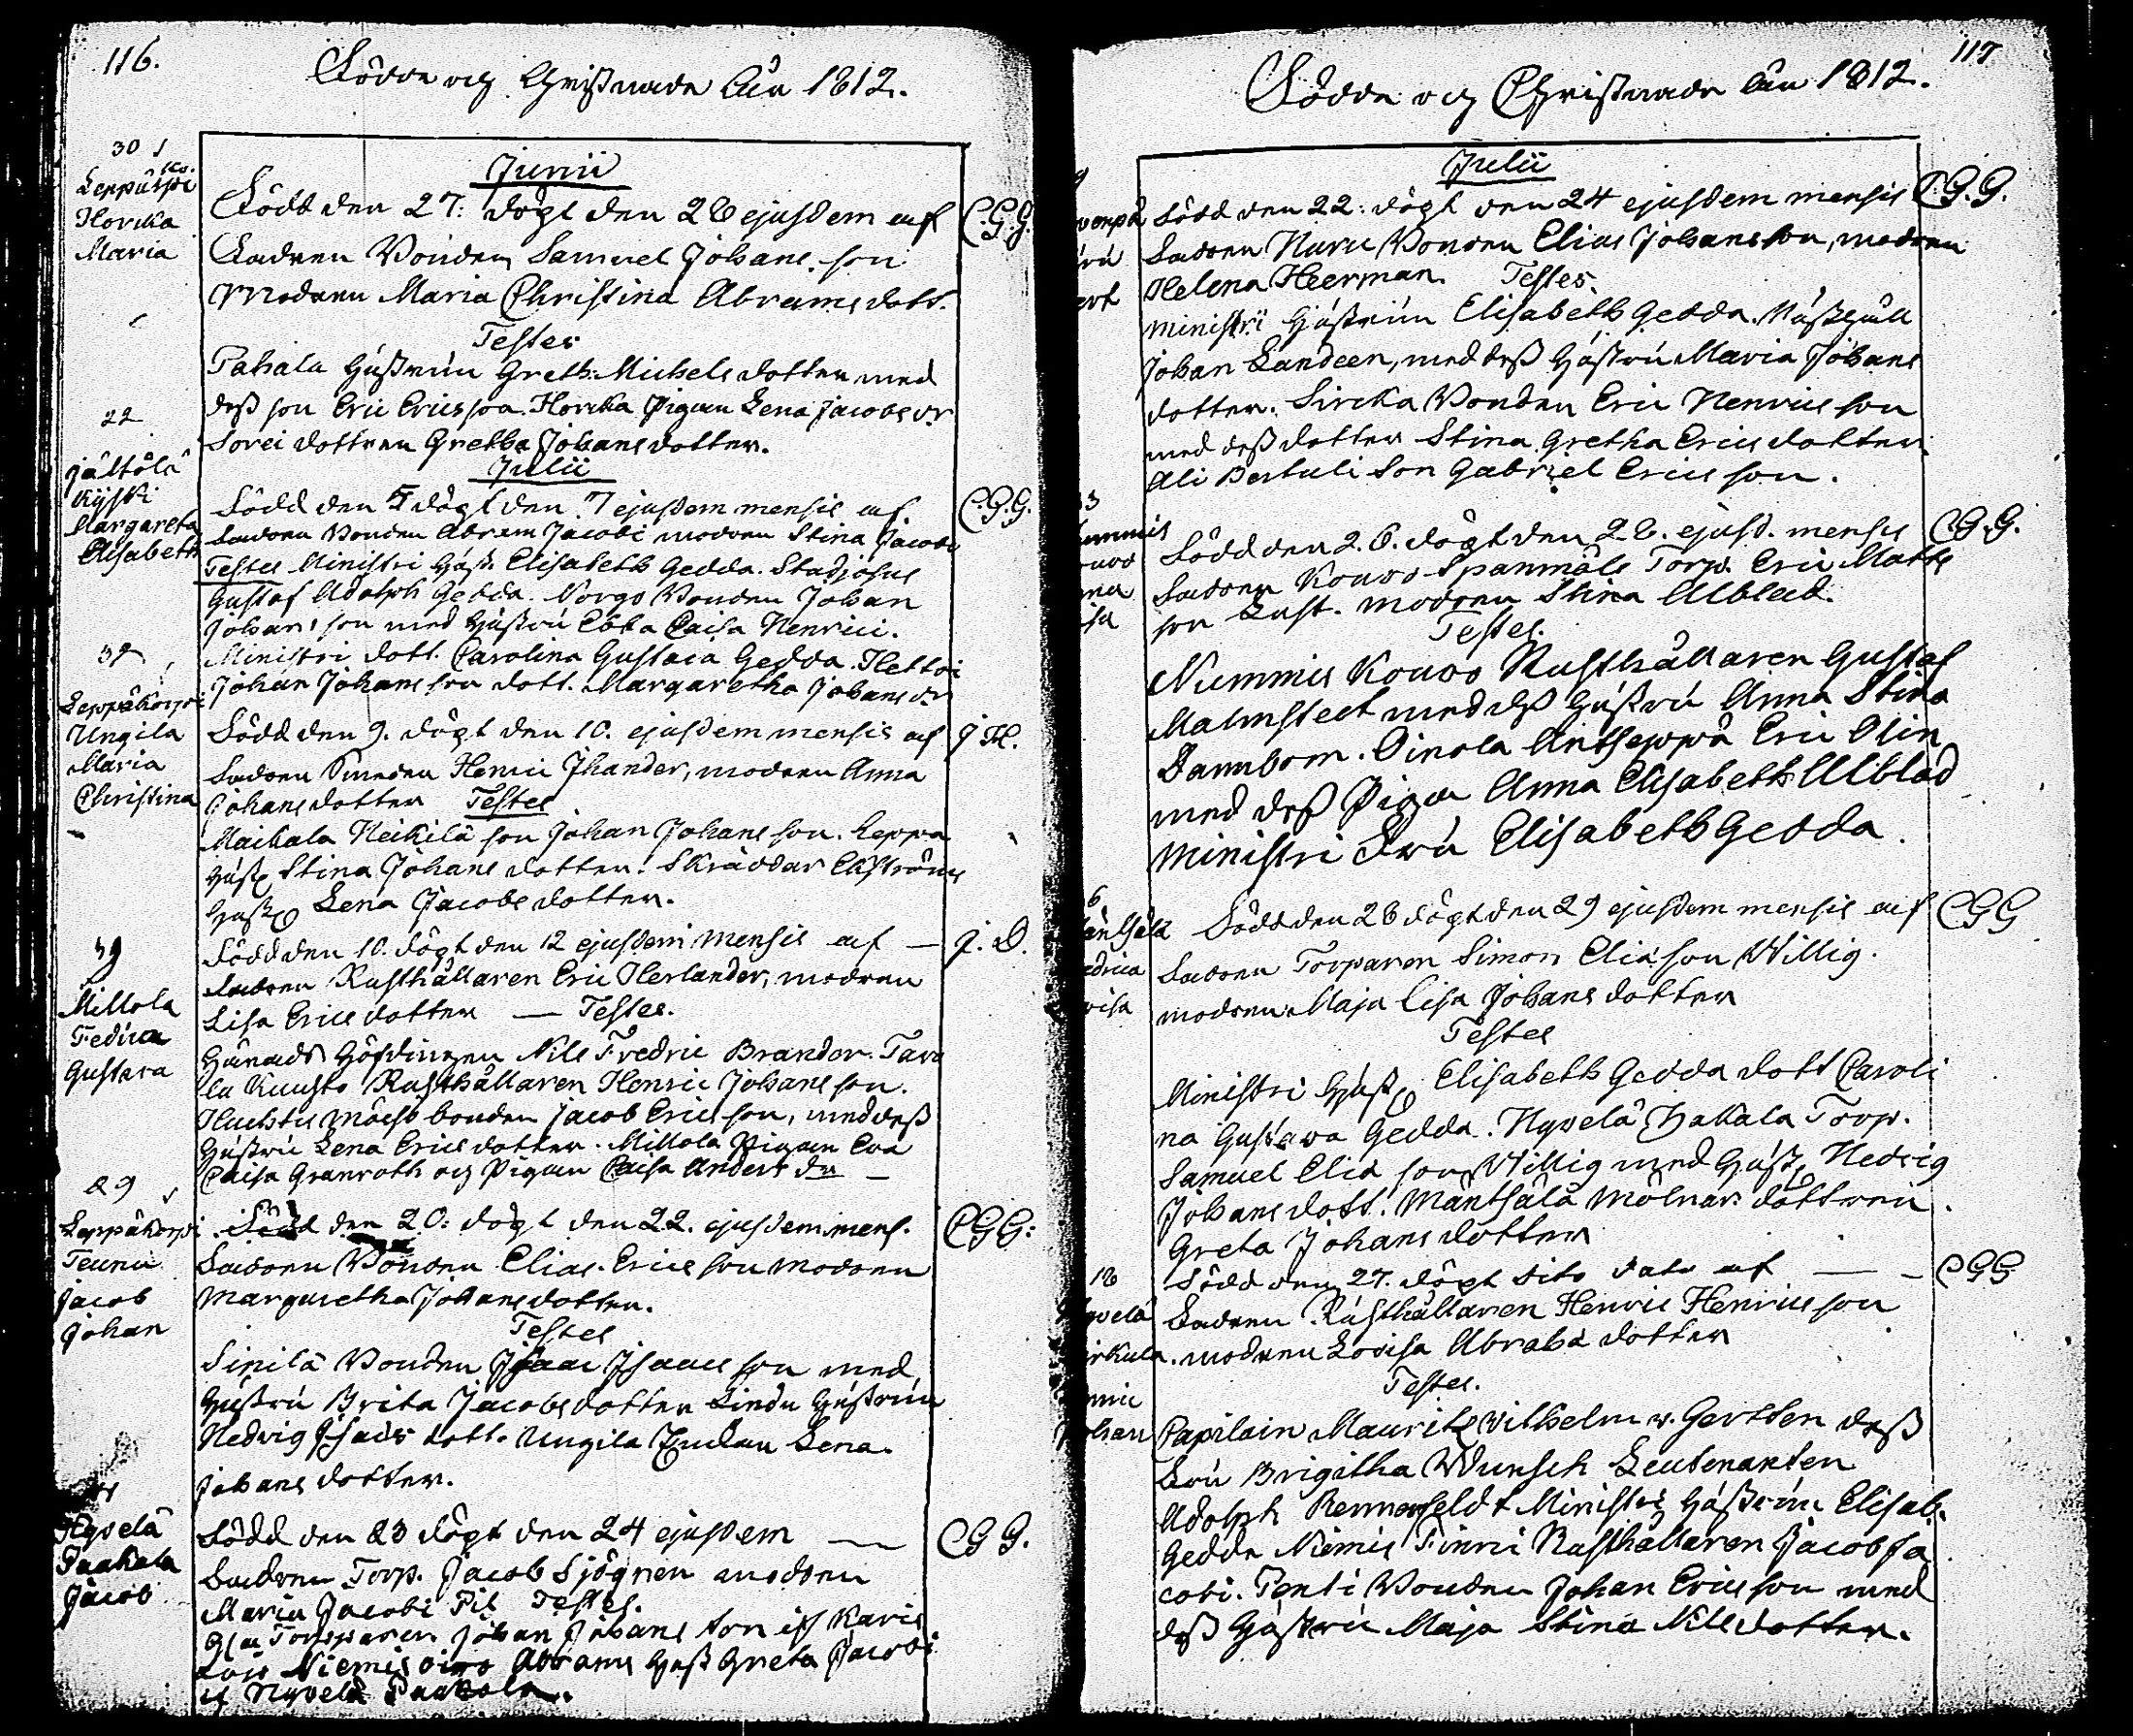 116.
Födde og Christnade Åhr 1812.
30
Leppäkoski
Horcka
Maria
Junii
Född den 27: dögt den 28 ejusdem af
C.G.G.
Fadren Bonden Samuel Johans son
Modren Maria Christina Abramsdott.
Testes
Pahala Hustrun Greth: Michels dotter med
dess son Eric Ericsson. Horcka Pigan Lena Jacobs dr
Sorri dottren Gretha Johansdotter.
22
Jältölä
Kyssti
Margareta
Elisabeth
Julii
Född den 5 dögt den 7 ejusdem mensis af
C.G.G.
Fadren Bonden Abram Jacobi modren Stina Jacobi
Testes Ministri Hust. Elisabeth Gedda. Stadjosus
Gustaf Adolph Gedda. Norgo Bonden Johan
Johans son med Hustru Ebba Caisa Henrici.
Ministri dott. Carolina Gustava Gedda. Hettoi
Johan Johans son dott. Margaretha Johans dr
39
Leppäkorpi
Ungila
Maria
Christina
Född den 9. dögt den 10. ejusdem mensis af
J H.
Fadren Smeden Henric Ihander, modren Anna
Johans dotter Testes
Maikala Heikilä son Johan Johans son. Leppä
Hust Stina Johans dotter. Skräddar Ekströms
Hust Lena Jacobs dotter.
39
Millola
Fedrica
Gustava
Född den 10. dögt den 12 ejusdem mensis af —
J. D.
Fadren Rusthållaren Eric Herlander, modren
Lisa Erics dotter — Testes.
Härads Höfdingen Nils Fredric Brander. Tava
la Knuuts Rusthållaren Henric Johans son.
Huchtis bonden Jacob Erics son, med dess
Hustru Lena Erics dotter. Millola Pigan Eva
Caisa Granroth og Pigan Caisa Anders dr —
29
Leppäkorpi
Teunu
Jacob
Johan
Född den 20: dögt den 22. ejusdem mens.
CGG:
Fadren Bonden Elias Erics son modren
Margaretha Johansdotter.
Testes
Sipilä Bonden Isaac Isaacs son med
Hustru Brita Jacobsdotter Lindu Hustrun
Hedvig Isacs dott. Ungila Enkan Lena
Johans dotter.
Hyvelä
Paakala
Jacob
Född den 23 dögt den 24 ejusdem —
CGG.
Fadren Torp. Jacob Sjögren modren
Maria Jacobi Pil Testes.
Torpparen Johan Johans son if Karis
Niemis Abrams Hust Greta Jacobi
if Hyvelä Paakola.
117
Födde og Christnade Åhr 1812.
Julii
Född den 22: dögt den 24 ejusdem mensis
C.G.G.
Fadren Huru Bonden Elias Johansson, modren
Helena Heerman. Testes.
Ministri Hustrun Elisabeth Gedda.
Johan Landeen, med dess Hustru Maria Johans
dotter. Sircka Bonden Eric Henrics son
med dess dotter Stina Gretha Erics dotter
Ali Bertuli Son Gabriel Erics son.
Född den 26. dögt den 28. ejusd. mensis
C.G.G.
Fadren Kouvo Spanmåls Torp. Eric Matts
son Lust. modren Stina Alblad.
Testes.
Nummis Kouvo Rusthållaren Gustaf
Malmstedt med dess Hustru Anna Stina
Dannbom. Oinola Antseppä Eric Olin
med dess Piga Anna Elisabeth Alblad
Ministri Fru Elisabeth Gedda.
Född den 28 dögt den 29 ejusdem mensis af
CGG
Fadren Torparen Simon Elia son Willig.
modren Maja Lisa Johans dotter
Testes
Ministri Hust Elisabeth Gedda dott Caroli
na Gustava Gedda. Hyvelä Hakala Torp.
Samuel Elia son Willig med Hust Hedvig
Johans dott. Mäntsälä Mölnar dottren
Greta Johans dotter
18
Född den 27. dögt dito dato af — —
CGG
Fadren Rusthållaren Henric Henrics son
modren Lovisa Abraha dotter
Testes.
Capitain Mauritz Wilhelm v. Gertten dess
Fru Brigitha Wunsch Leutenanten
Adolph Rennerfeldt Ministri Hustrun Elisab.
Gedda Niemis Finni Rusthållaren Jacob Ja
cobi. Penti Bonden Johan Erics son med
dess Hustru Maja Stina Nils dotter.